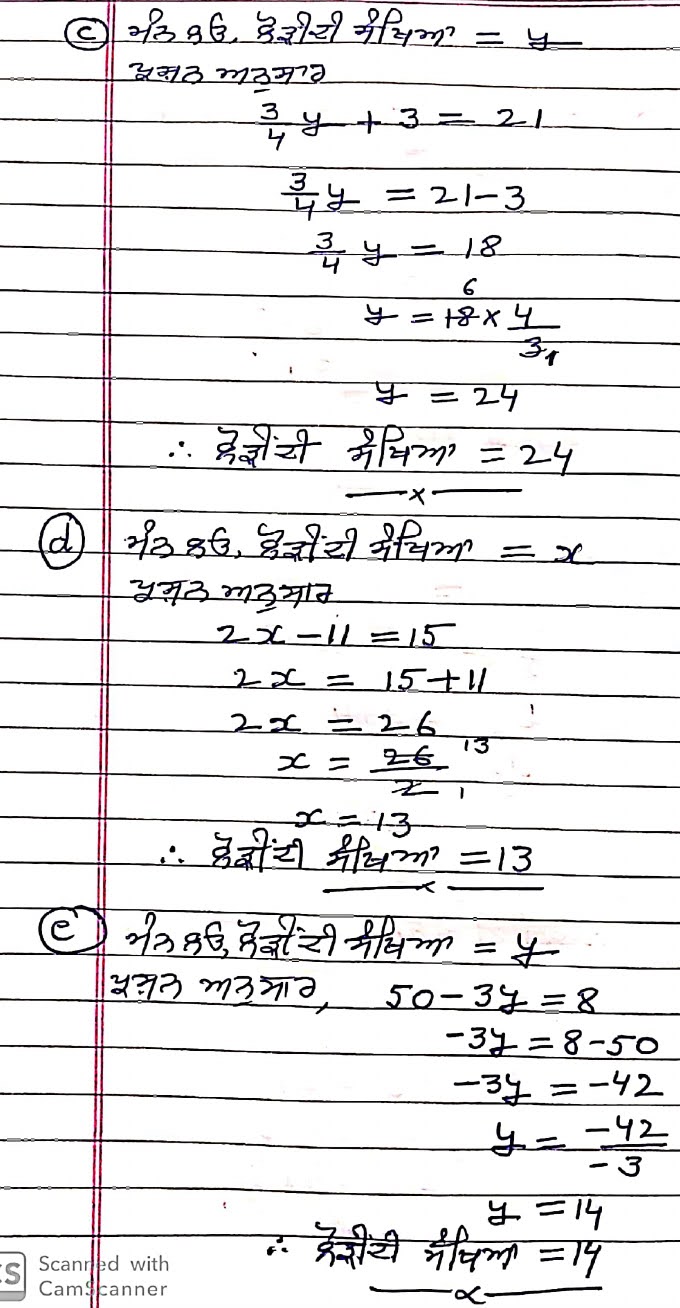 (c) ਮੰਨ ਲਓ, ਲੋੜੀਂਦੀ ਸੰਖਿਆ = y
ਪ੍ਰਸ਼ਨ ਅਨੁਸਾਰ
3/4 y + 3 = 21
3/4 y = 21-3
3/4 y = 18
6
y = 18 × 4/3 1
y = 24
∴ ਲੋੜੀਂਦੀ ਸੰਖਿਆ = 24
—x—
(d) ਮੰਨ ਲਓ, ਲੋੜੀਂਦੀ ਸੰਖਿਆ = x
ਪ੍ਰਸ਼ਨ ਅਨੁਸਾਰ
2x - 11 = 15
2x = 15 + 11
2x = 26
x = 26/2 13 1
x = 13
∴ ਲੋੜੀਂਦੀ ਸੰਖਿਆ = 13
—x—
(e) ਮੰਨ ਲਓ, ਲੋੜੀਂਦੀ ਸੰਖਿਆ = y
ਪ੍ਰਸ਼ਨ ਅਨੁਸਾਰ, 50 - 3y = 8
-3y = 8 - 50
-3y = -42
y = -42/-3
y = 14
∴ ਲੋੜੀਂਦੀ ਸੰਖਿਆ = 14
—x—
CS Scanned with
CamScanner